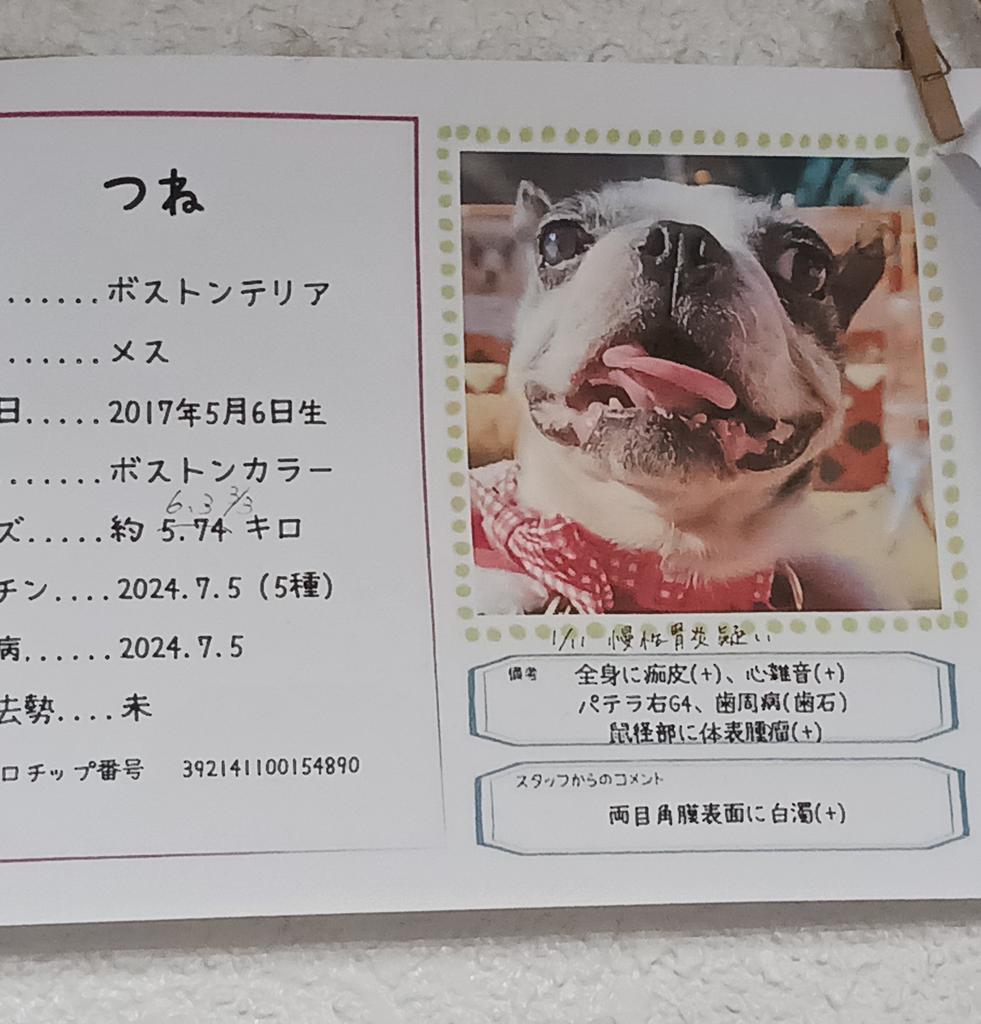 つね
......ボストンテリア
......メス
日.....2017年5月6日生
......ボストンカラー
6.3 3/3
ズ.....約 5.74 キロ
チン....2024.7.5 (5種)
病......2024.7.5
去勢....未
ロチップ番号 392141100154890
1/11 慢性胃炎疑い
備考 全身に痂皮(+)、心雑音(+)
パテラ右G4、歯周病(歯石)
鼠径部に体表腫瘤(+)
スタッフからのコメント
両目角膜表面に白濁(+)